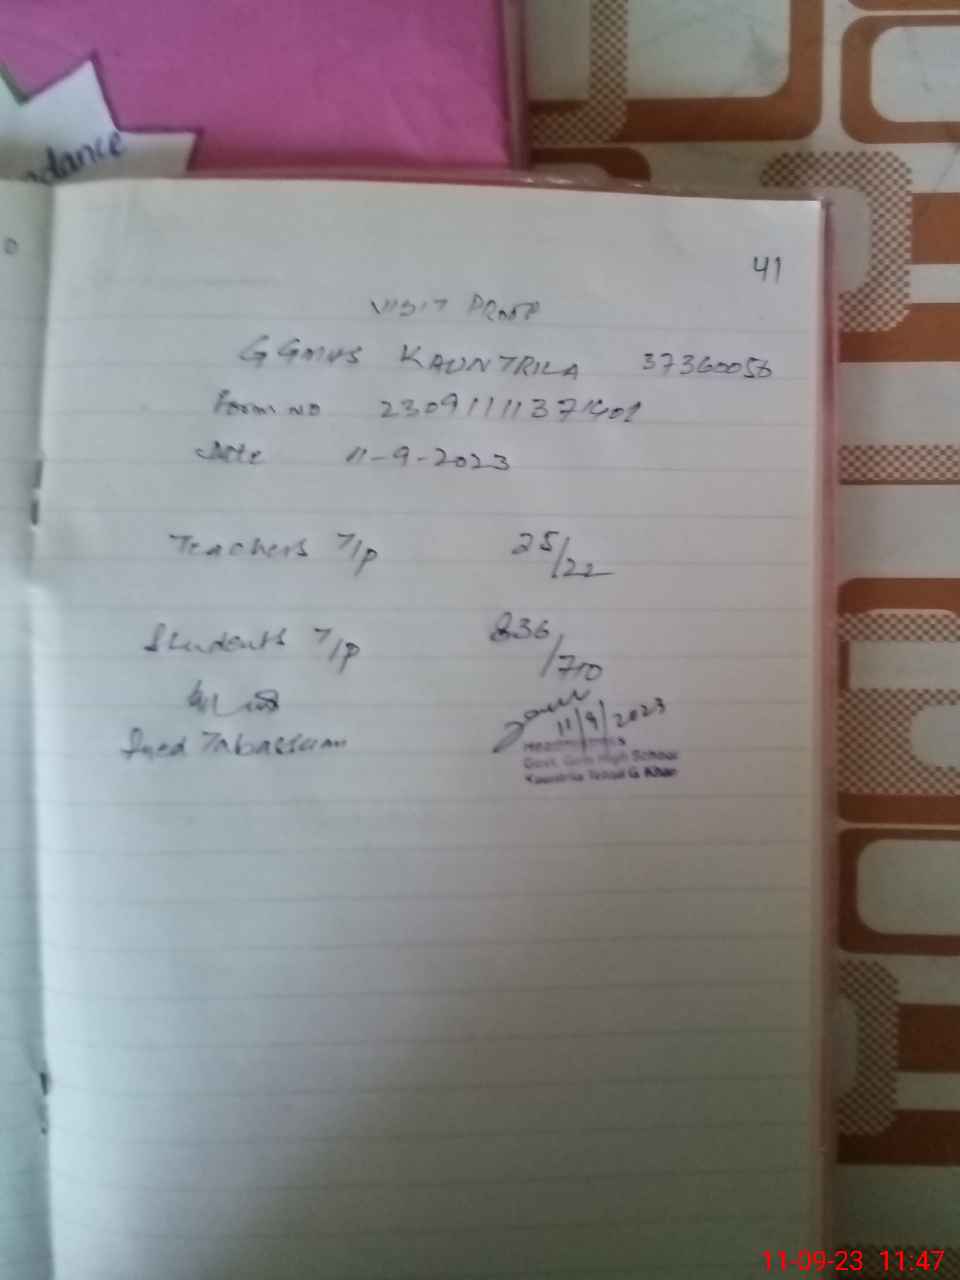 dance
0
41
VISIT PROOF
G GMHS KAUNTRILA 37360056
Form NO
Date 11-9-2023
Teachers T/P 25/22
Students T/P 836/710
Syed Tabassum
11/9/2023
Headmistress
Govt. Girls High School
Kauntrila Tehsil G Khan
11-09-23 11:47